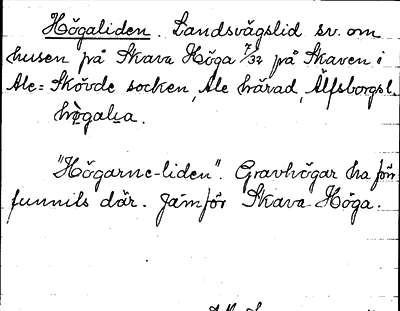 Högaliden. Landsvägslid sv. om
husen på Skava Höga 7/32 på Skaven i
Ale-Skövde socken, Ale härad, Älfsborgs l.
hö̀galia.
"Högarne-liden". Gravhögar ha förr
funnits där. Jämför Skava Höga.